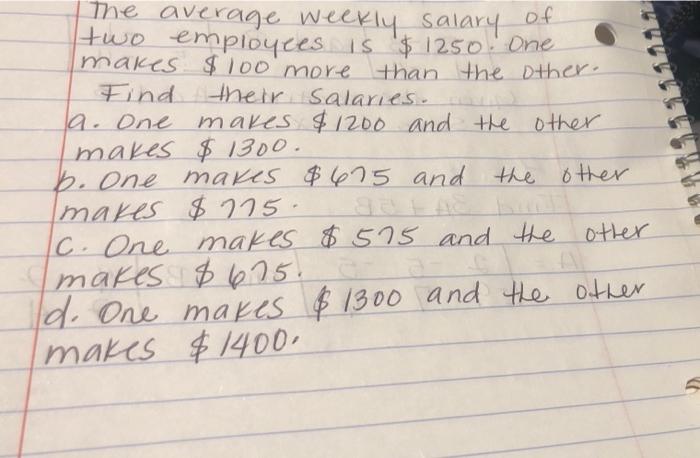 The average weekly salary of
two employees is $1250. One
makes $100 more than the other.
Find their salaries.
a. One makes $1200 and the other
makes $1300.
b. One makes $675 and the other
makes $775.
C. One makes $575 and the other
makes $675.
d. One makes $1300 and the other
makes $1400.